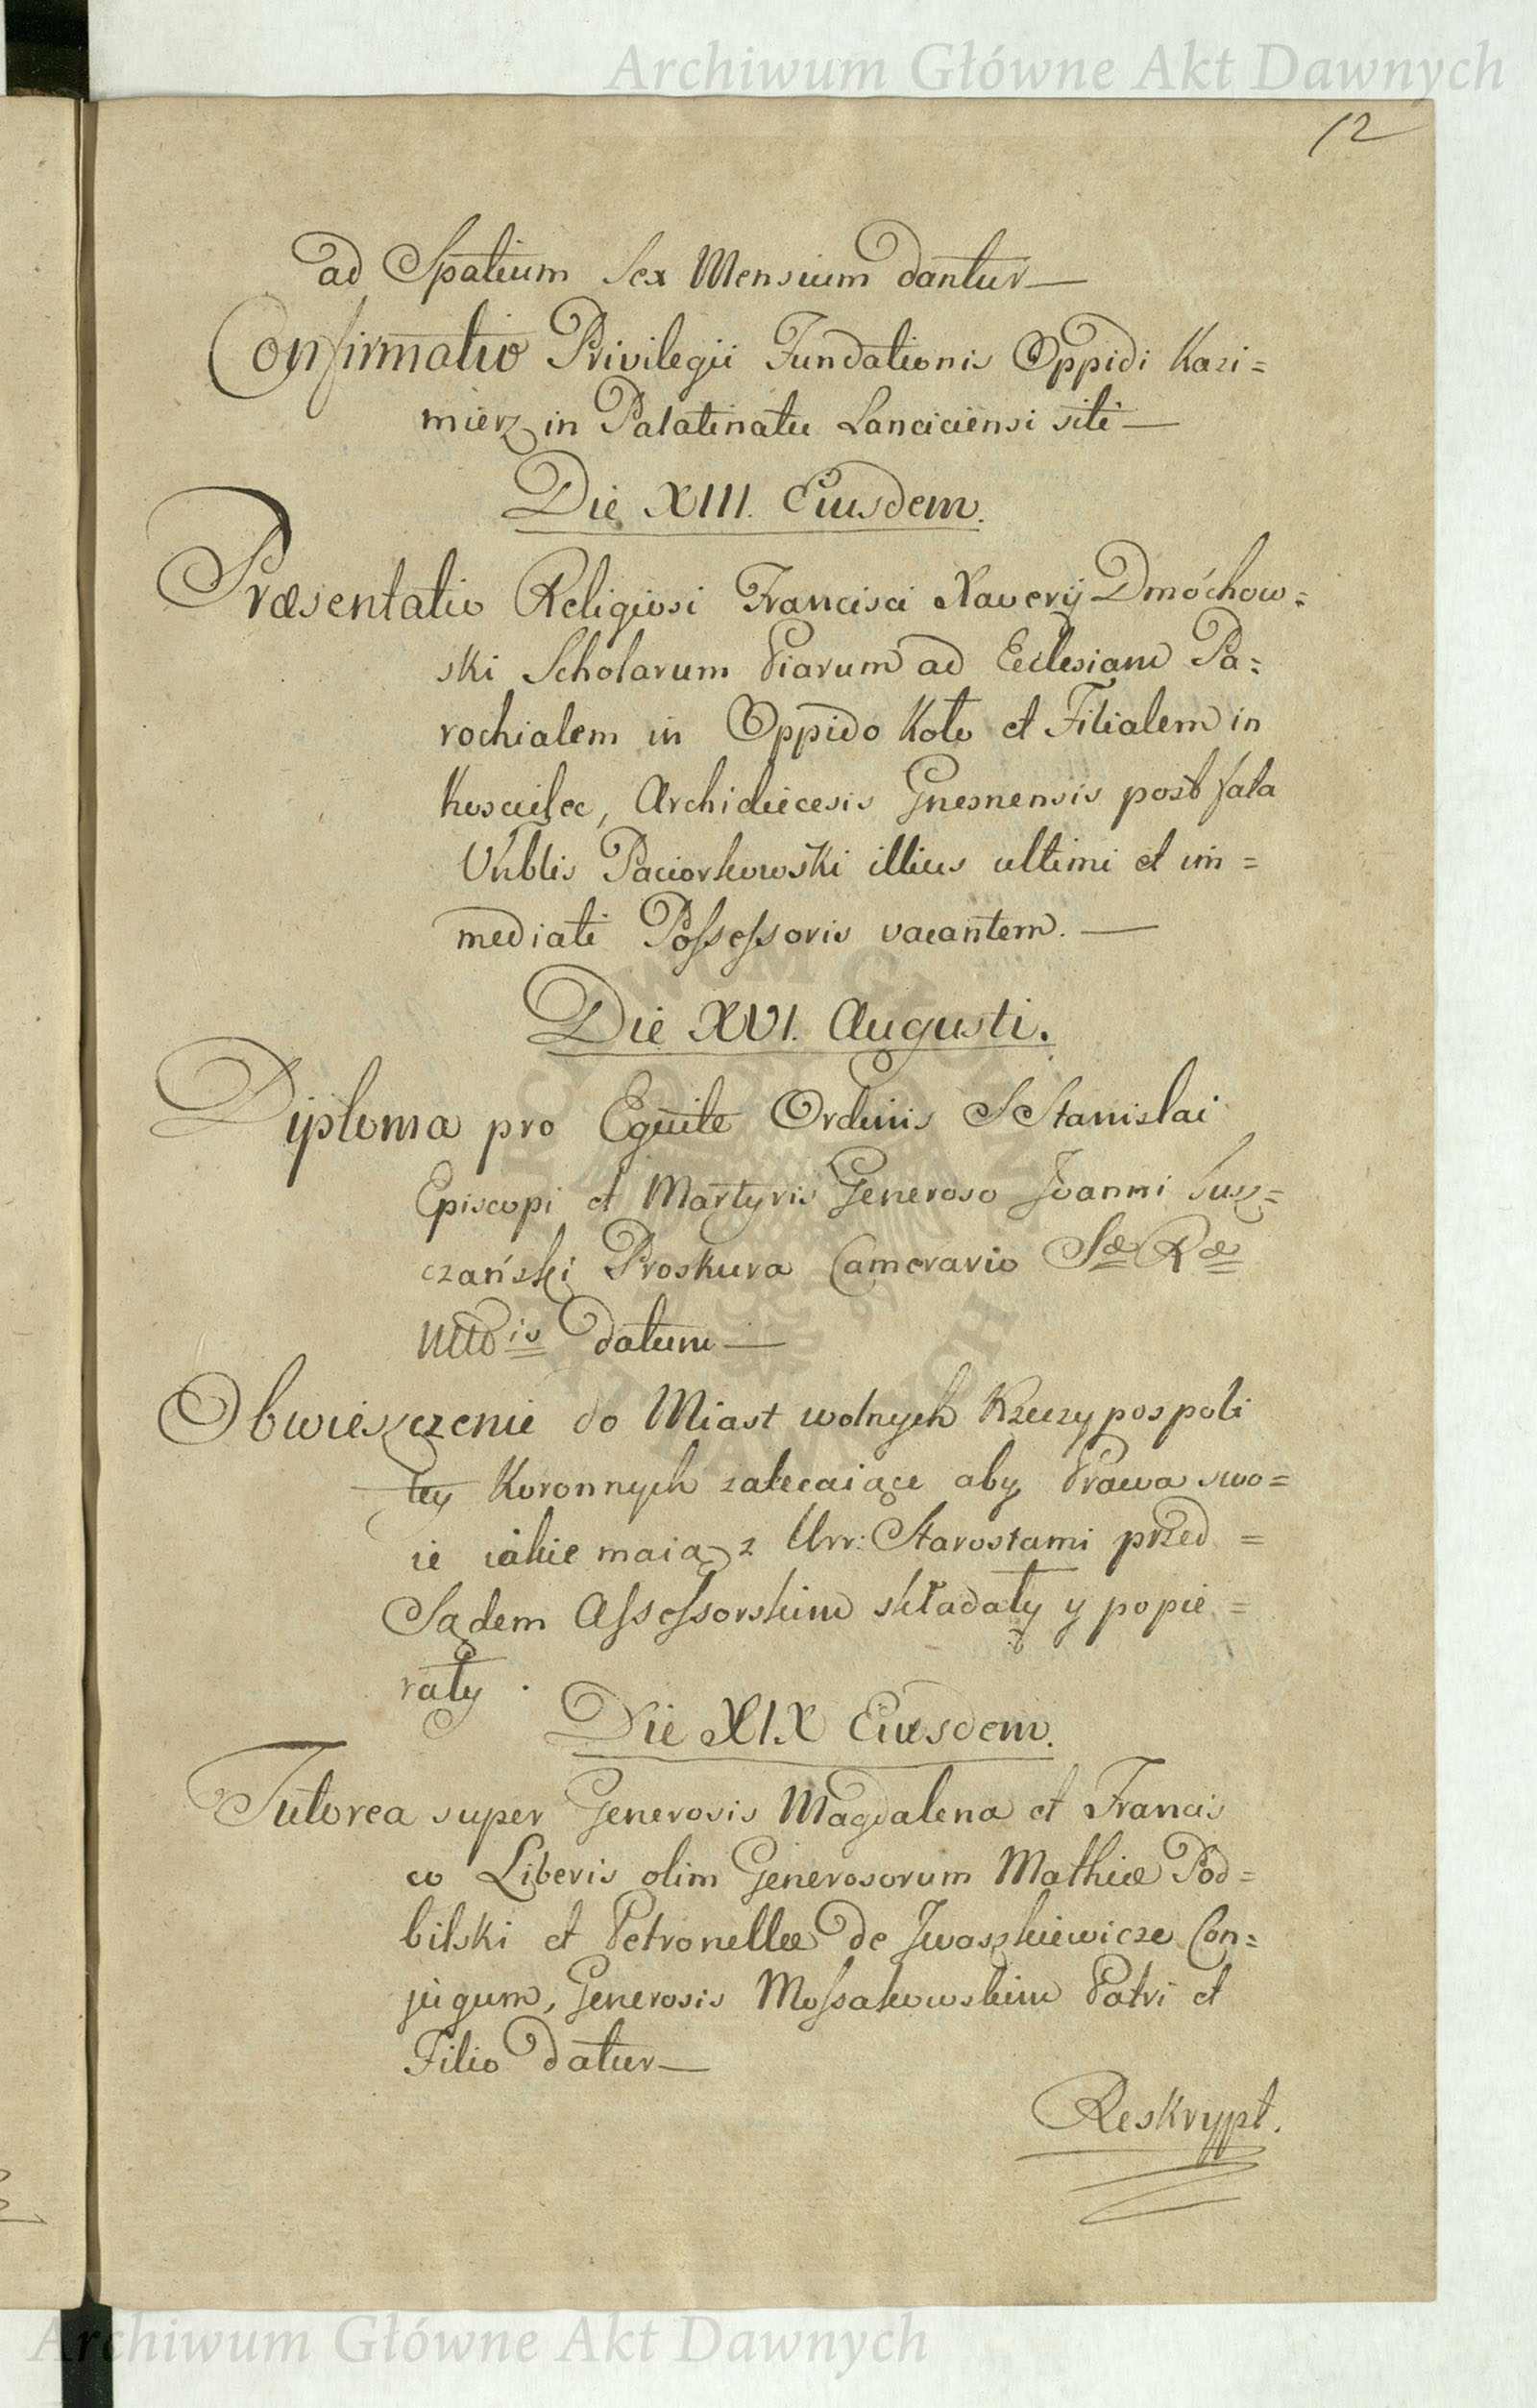 Archiwum Główne Akt Dawnych
12
ad Spatium Sex Mensium dantur—
Confirmatio Privilegii Fundationis Oppidi Kazi=
mierz in Palatinatu Lanciciensi siti—
Die XIII. Eiusdem.
Præsentatio Religiosi Francisci Xaverij Dmóchow=
ski Scholarum Piarum ad Ecclesiam Pa=
rochialem in Oppido Koło et Filialem in
Kościelec, Archidiecesis Gnesnensis post fata
Vnblis Paciorkowski illius ultimi et im=
mediati Possessoris vacantem.—
Die XVI. Augusti.
Dyploma pro Equite Ordinis S Stanislai
Episcopi et Martyris Generoso Joanni Susz=
czański Proskura Camerario Sæ Ræ
Mttis datum—
Obwieszczenie do Miast wolnych Rzeczypospoli
tey Koronnych zalecaiące aby Prawa swo=
ie iakie maią z Urr: Starostami przed=
Sądem Assessorskim składały y popie=
rały.
Die XIX Eiusdem.
Tutorea super Generosis Magdalena et Francis
co Liberis olim Generosorum Mathiæ Pod=
bilski et Petronellæ de Jwaszkiewicze Con=
jugum, Generosis Mossakowskim Patri et
Filio datur—
Reskrypt.
Archiwum Główne Akt Dawnych